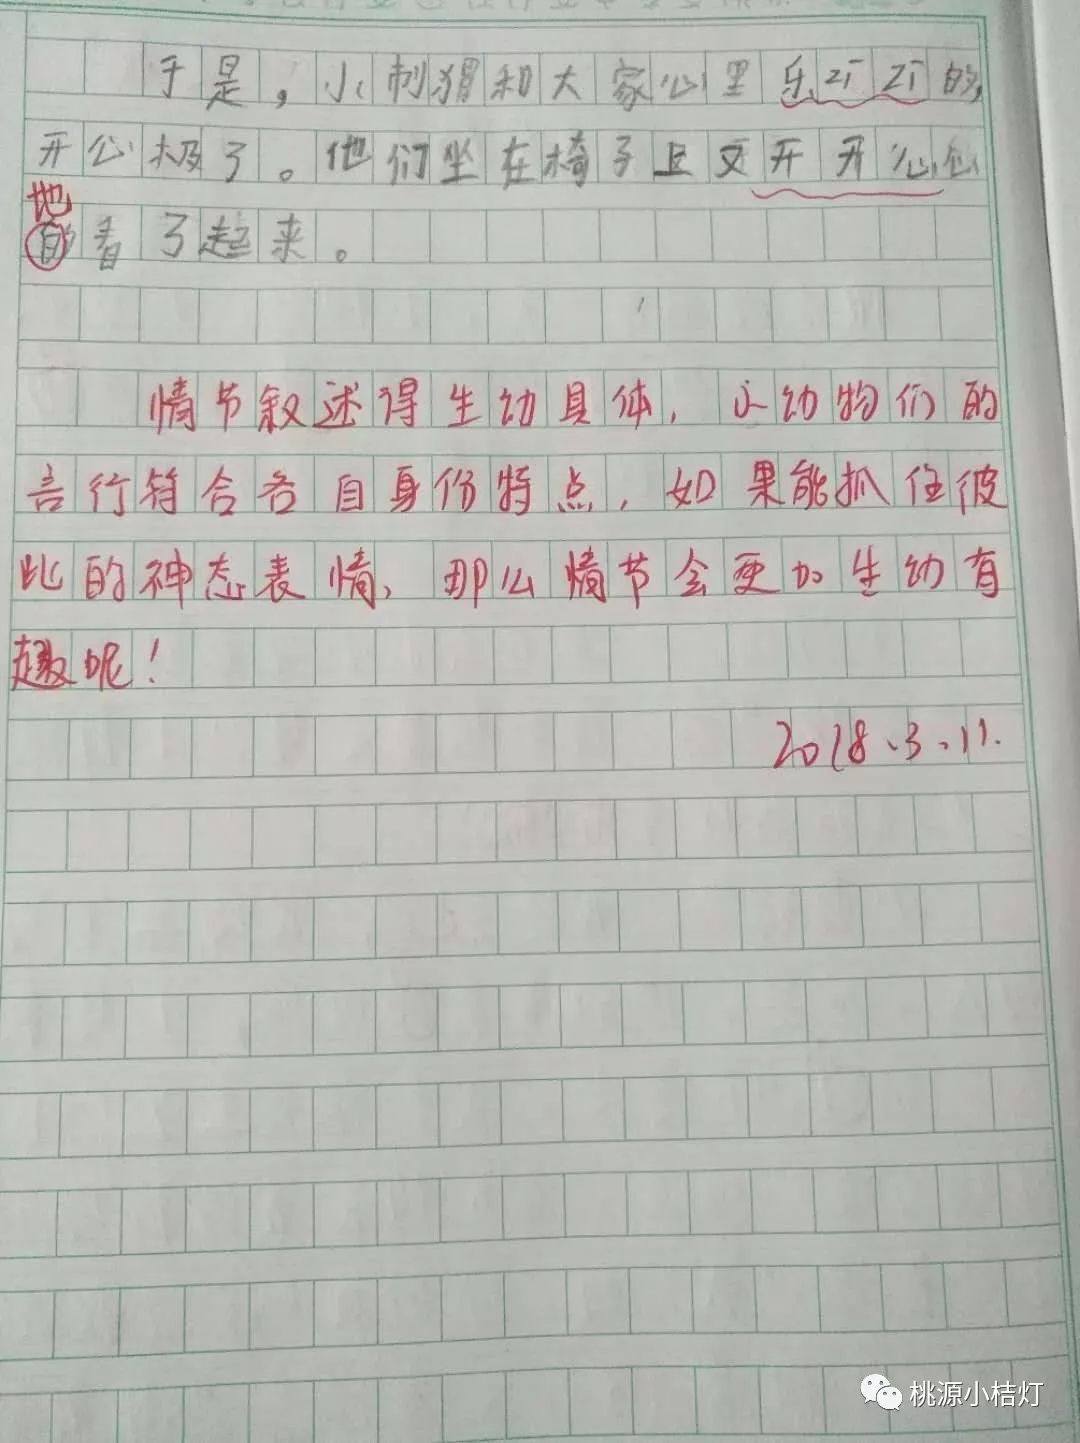 于是，小刺猬和大家心里乐歪歪的，
开心极了。他们坐在椅子上又开开心心
地
的看了起来。
情节叙述得生动具体，小动物们的
言行符合各自身份特点，如果能抓住彼
此的神态表情，那么情节会更加生动有
趣呢！
2018.3.11.
桃源小桔灯